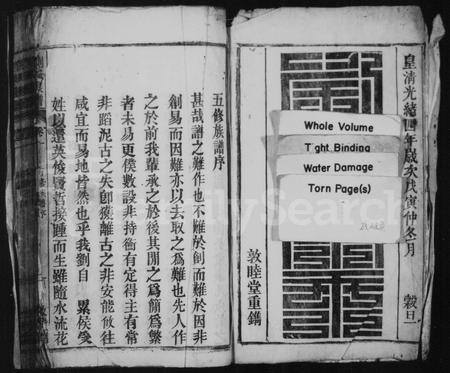 皇清光緒四年歲次戊寅仲冬月 穀旦
Whole Volume
Tight Binding
Water Damage
Torn Page(s)
敦睦堂重鐫
五修族譜序
甚哉譜之難作也不難於創而難於因非
創易而因難亦以去取之為難也先人作
之於前我輩承之於後其間之為簡為繁
者未易更僕數設非持衡有定得主有常
非蹈泥古之失卽復離古之非安能攸往
咸宜而易地皆然也乎我劉自 累侯受
姓以還英俊賢哲接踵而生雖隨水流花